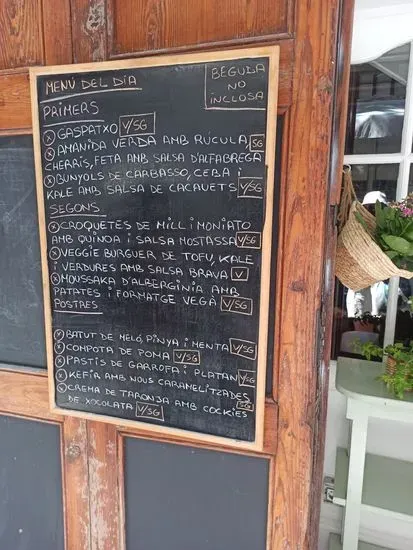 MENÚ DEL DIA
BEGUDA
NO
INCLOSA
PRIMERS
GASPATXO V/SG
AMANIDA VERDA AMB RÚCULA, SG
CHERRIS, FETA AMB SALSA D'ALFÀBREGA
BUNYOLS DE CARBASSO, CEBA i
KALE AMB SALSA DE CACAUETS V/SG
SEGONS
CROQUETES DE MILL i MONIATO
AMB QUINOA i SALSA MOSTASSA V/SG
VEGGIE BURGUER DE TOFU, KALE
i VERDURES AMB SALSA BRAVA V
MOUSSAKA D'ALBERGINIA AMB
PATATES i FORMATGE VEGÀ V/SG
POSTRES
BATUT DE MELÓ, PINYA i MENTA V/SG
COMPOTA DE POMA V/SG
PASTIS DE GARROFA i PLATAN V/SG
KEFIR AMB NOUS CARAMELITZADES SG
CREMA DE TARONJA AMB COOKIES
DE XOCOLATA V/SG